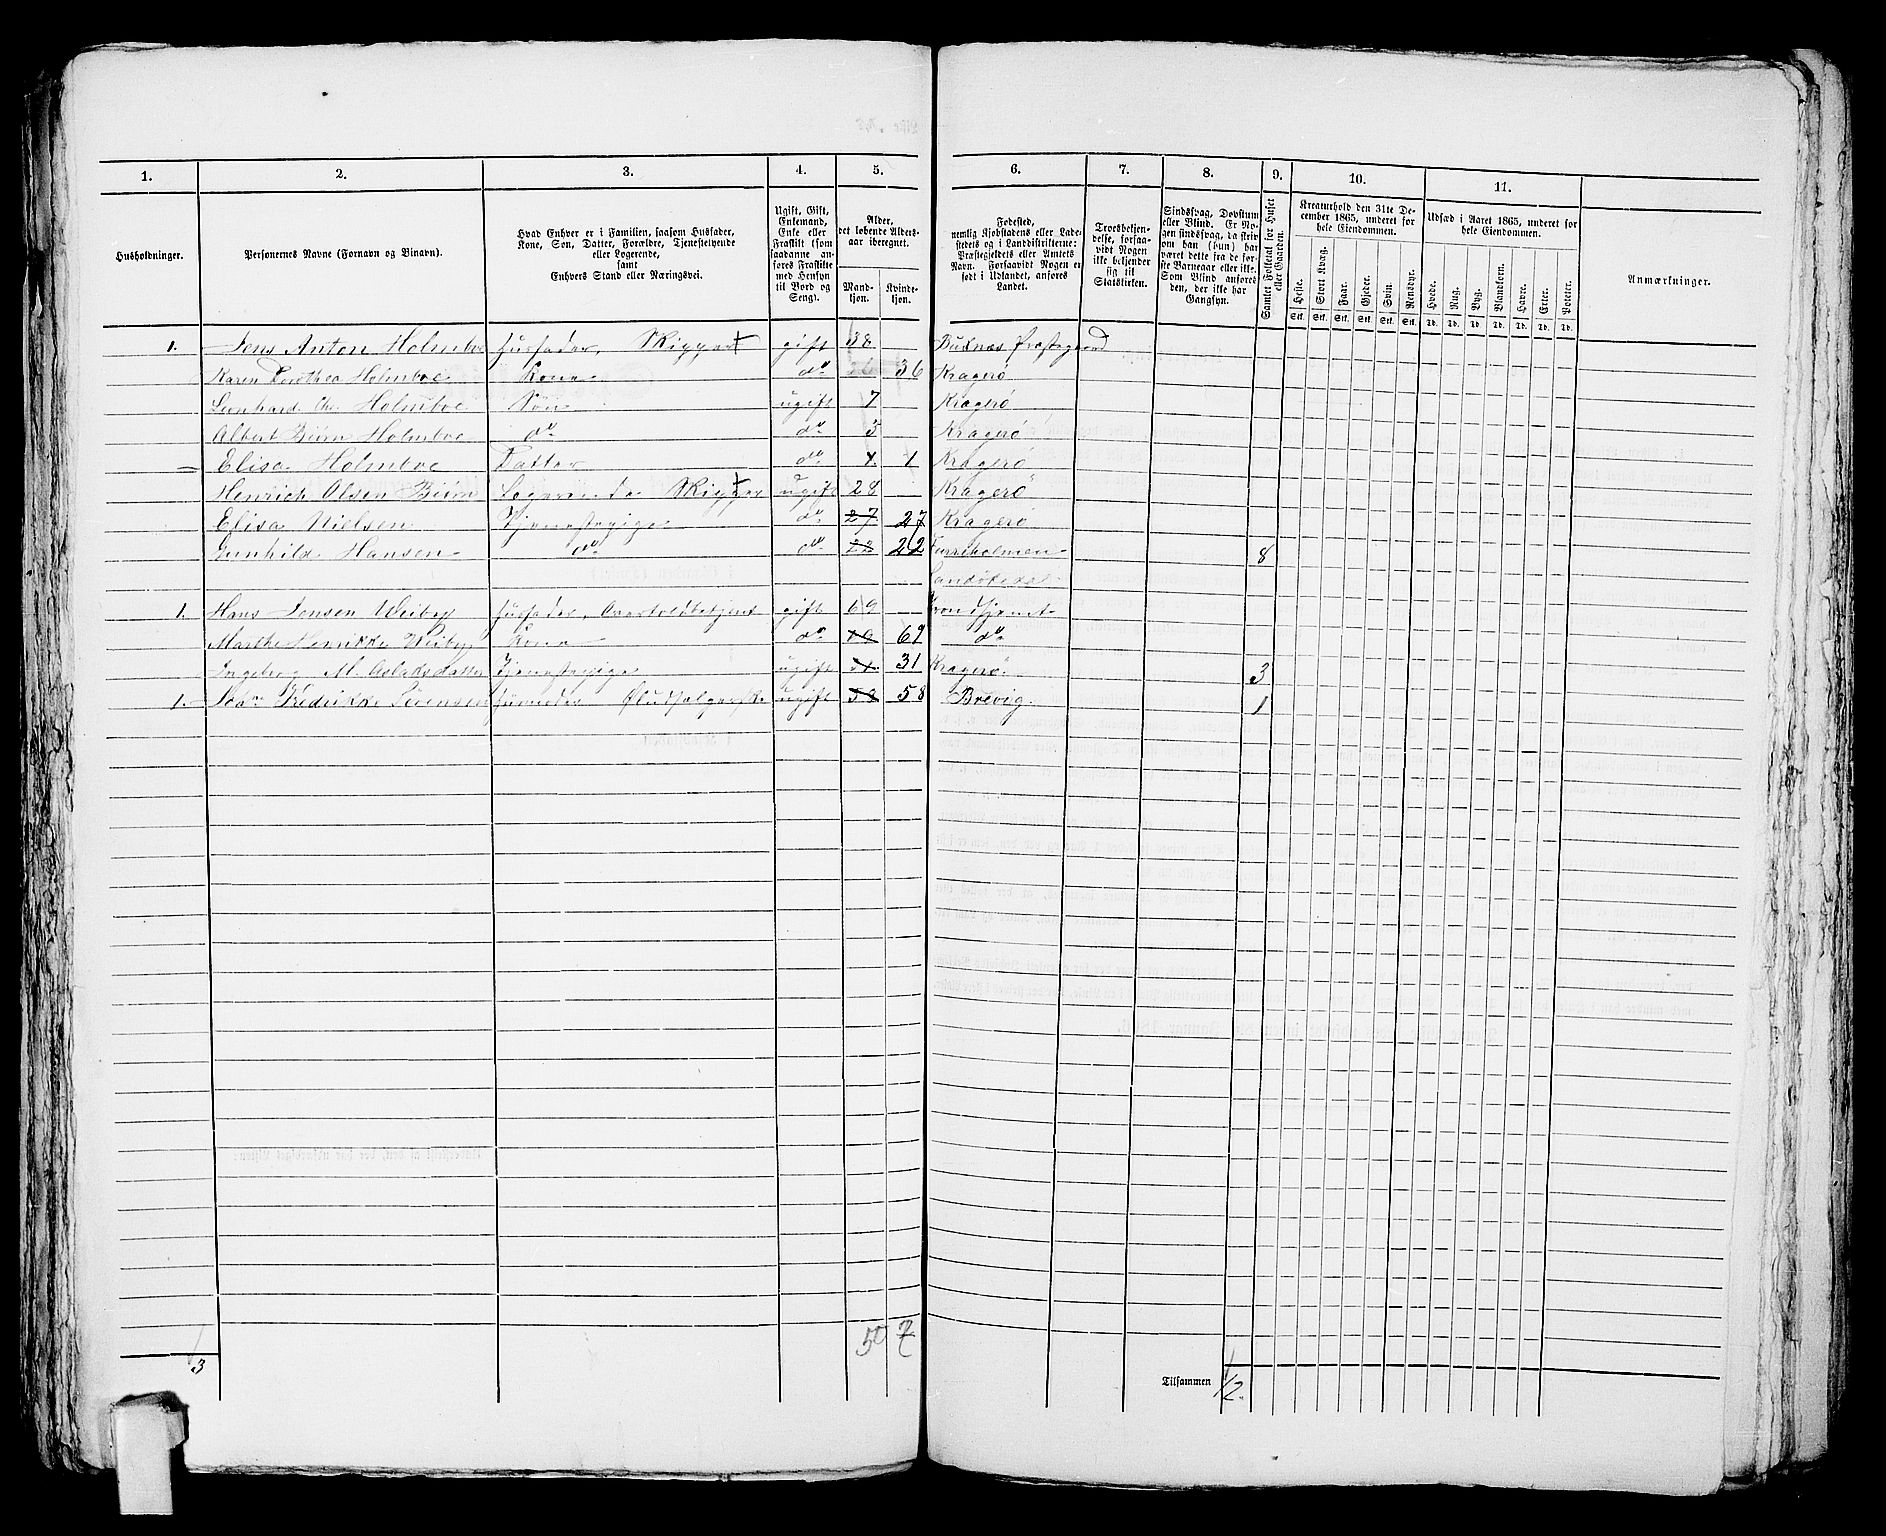 1. 2. 3. 4. 5. 6. 7. 8. 9. 10. 11.
Husholdninger.
Personernes Navne (Fornavn og Binavn).
Hvad Enhver er i Familien, saasom Husfader,
Kone, Søn, Datter, Forældre, Tjenestetyende
eller Logerende,
samt
Enhvers Stand eller Næringsvei.
Ugift, Gift,
Enkemand,
Enke eller
Fraskilt (som
saadanne an-
føres Fraskilte
med Hensyn
til Bord og
Seng).
Alder,
det løbende Alders-
aar iberegnet.
Mand-
kjøn.
Kvinde-
kjøn.
Fødested,
nemlig Kjøbstadens eller Lade-
stedets og i Landdistrikterne:
Præstegjeldets eller Amtets
Navn. Forsaavidt Nogen er
født i Udlandet, anføres
Landet.
Troesbekjen-
delse, forsaa-
vidt Nogen
ikke bekjender
sig til
Statskirken.
Sindssvag, Døvstum
eller Blind. Er No-
gen sindssvag, da skriv
om han (hun) har
været dette fra de før-
ste Barneaar eller ikke.
Som Blind anføres
den, der ikke har
Gangsyn.
Samlet Folketal for Huset
eller Gaarden.
Kreaturhold den 31te De-
cember 1865, underet for
hele Eiendommen.
Heste. Stort Kvæg. Faar. Gjeder. Svin. Rensdyr.
Stk. Stk. Stk. Stk. Stk. Stk.
Udsæd i Aaret 1865, underet for
hele Eiendommen.
Hvede. Rug. Byg. Blandkorn. Havre. Erter. Poteter.
Td. Td. Td. Td. Td. Td. Td.
Anmærkninger.
1. Jens Anton Holmboe Husfader, Skipper gift 38 Buxnæs Præstegaard
Karen Dorothea Holmboe Kone do 36 Kragerø
Leonhard Chr Holmboe Søn ugift 7 Kragerø
Albert Biørn Holmboe do do 3 Kragerø
Elisa Holmboe Datter do 1. 1 Kragerø
Henrich Olsen Biørn Logerende Skipper ugift 28 Kragerø
Elisa Nielsen Tjenestepige do 27 27 Kragerø
Gunhild Hansen do do 22 22 8
Sandøkedal
1. Hans Jensen Weiby Husfader, Overtoldbetjent gift 69 Trondhjemt
Marthe Henrikke Weiby Kone do 69 do
Ingeborg M. Aslaksdatter Tjenestepige ugift 31. 31 Kragerø. 3
1. Fredrikke Sørensen ugift 58 58 Brevig. 1
3
5 7
Tilsammen 12.